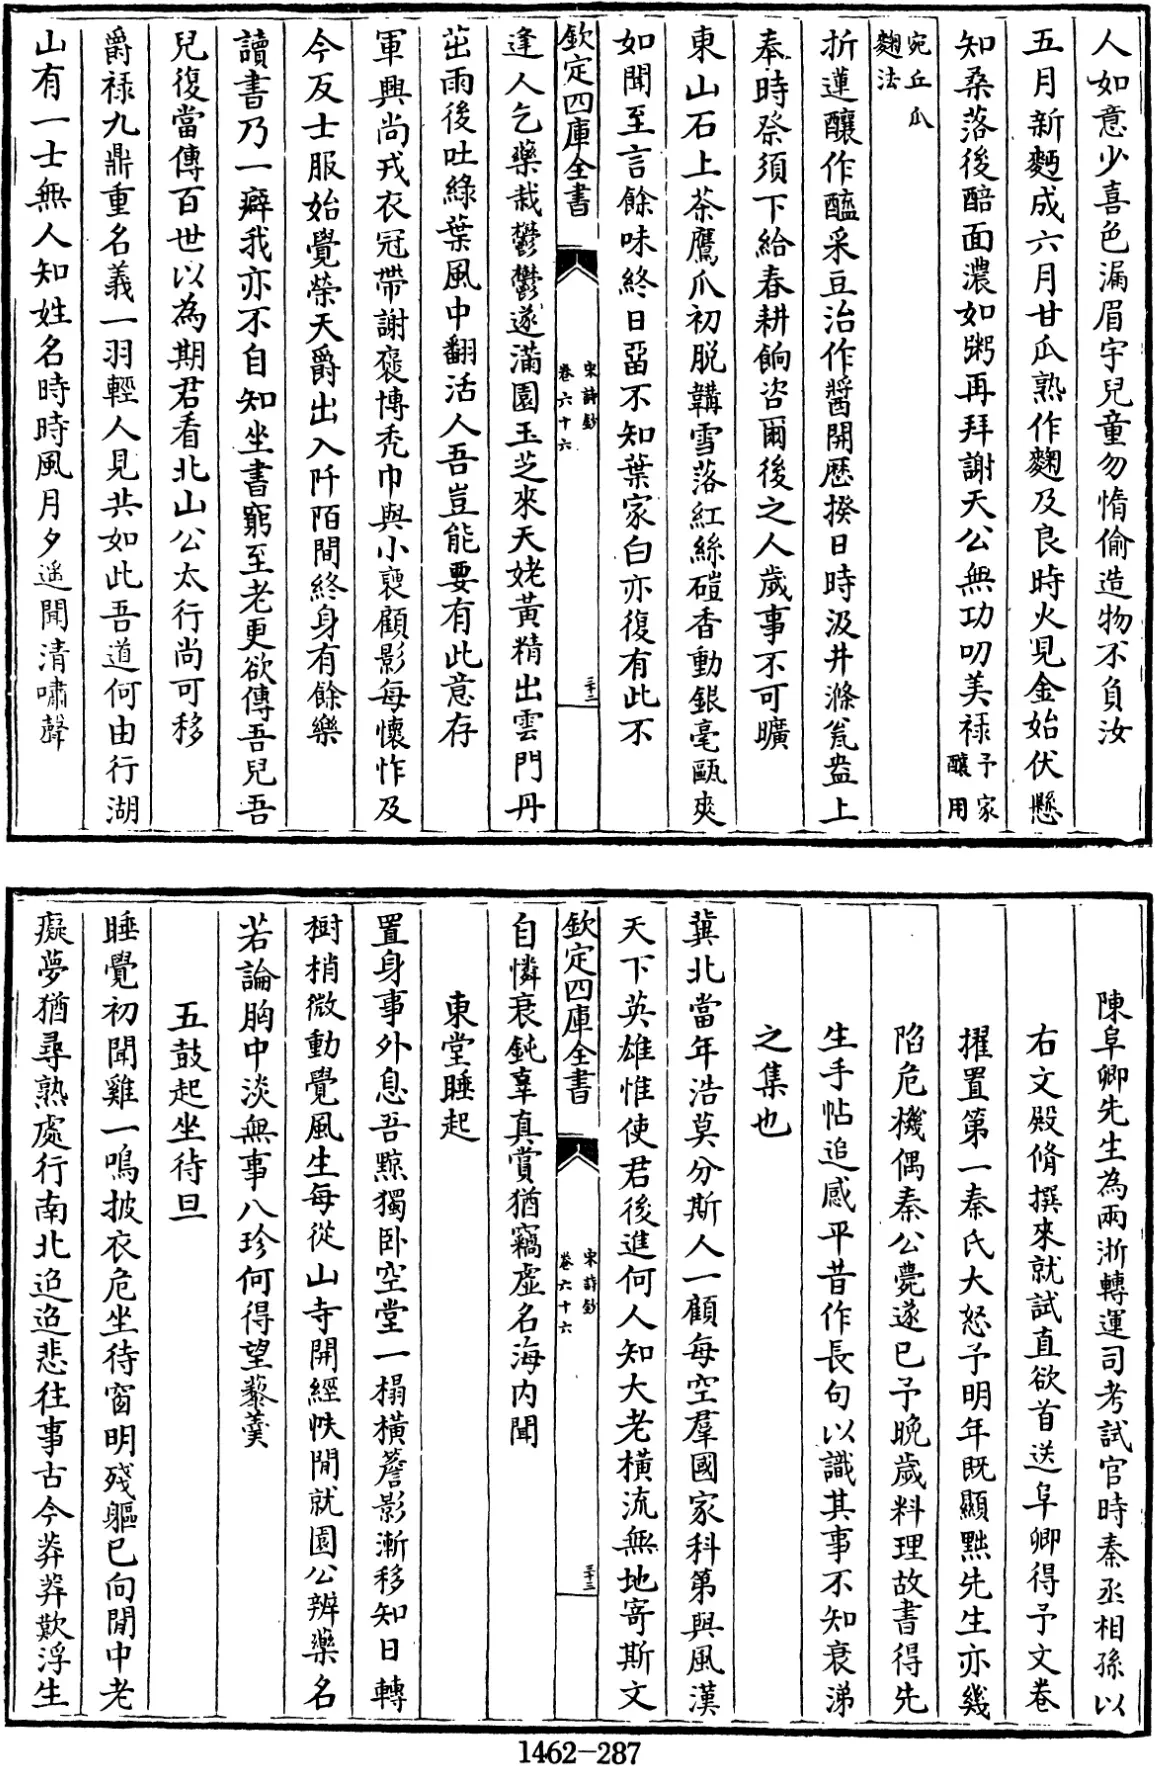 人如意少喜色漏眉宇兒童勿惰偷造物不負汝
五月新麪成六月甘瓜熟作麴及良時火見金始伏懸
知桑落後醅面濃如粥再拜謝天公無功叨美祿予家釀用
宛丘瓜麴法
折蓮釀作醢采豆治作醬開歷揆日時汲井滌瓮盎上
奉時祭須下給春耕餉咨爾後之人歲事不可曠
東山石上茶鷹爪初脱韝雪落紅絲磑香動銀毫甌爽
如聞至言餘味終日留不知葉家白亦復有此不
欽定四庫全書
宋詩鈔
卷六十六
三十二
逢人乞藥栽鬱鬱遂滿園玉芝來天姥黄精出雲門丹
茁雨後吐綠葉風中翻活人吾豈能要有此意存
軍興尚戎衣冠帶謝褒博秃巾與小褏顧影每懷怍及
今反士服始覺榮天爵出入阡陌間終身有餘樂
讀書乃一癖我亦不自知坐書窮至老更欲傳吾兒吾
兒復當傳百世以為期君看北山公太行尚可移
爵禄九鼎重名義一羽輕人見共如此吾道何由行湖
山有一士無人知姓名時時風月夕遥聞清嘯聲
陳阜卿先生為兩浙轉運司考試官時秦丞相孫以
右文殿脩撰來就試直欲首送阜卿得予文卷
擢置第一秦氏大怒予明年既顯黜先生亦幾
陷危機偶秦公薨遂已予晚歲料理故書得先
生手帖追感平昔作長句以識其事不知衰涕
之集也
冀北當年浩莫分斯人一顧每空羣國家科第與風漢
天下英雄惟使君後進何人知大老横流無地寄斯文
欽定四庫全書
宋詩鈔
卷六十六
三十三
自憐衰鈍辜真賞猶竊虛名海内聞
東堂睡起
置身事外息吾黥獨卧空堂一榻横簷影漸移知日轉
樹梢微動覺風生每從山寺開經帙閒就園公辨藥名
若論胸中淡無事八珍何得望藜羹
五鼓起坐待旦
睡覺初聞雞一鳴披衣危坐待窗明殘軀已向閒中老
癡夢猶尋熟處行南北迢迢悲往事古今莽莽歎浮生
1462-287